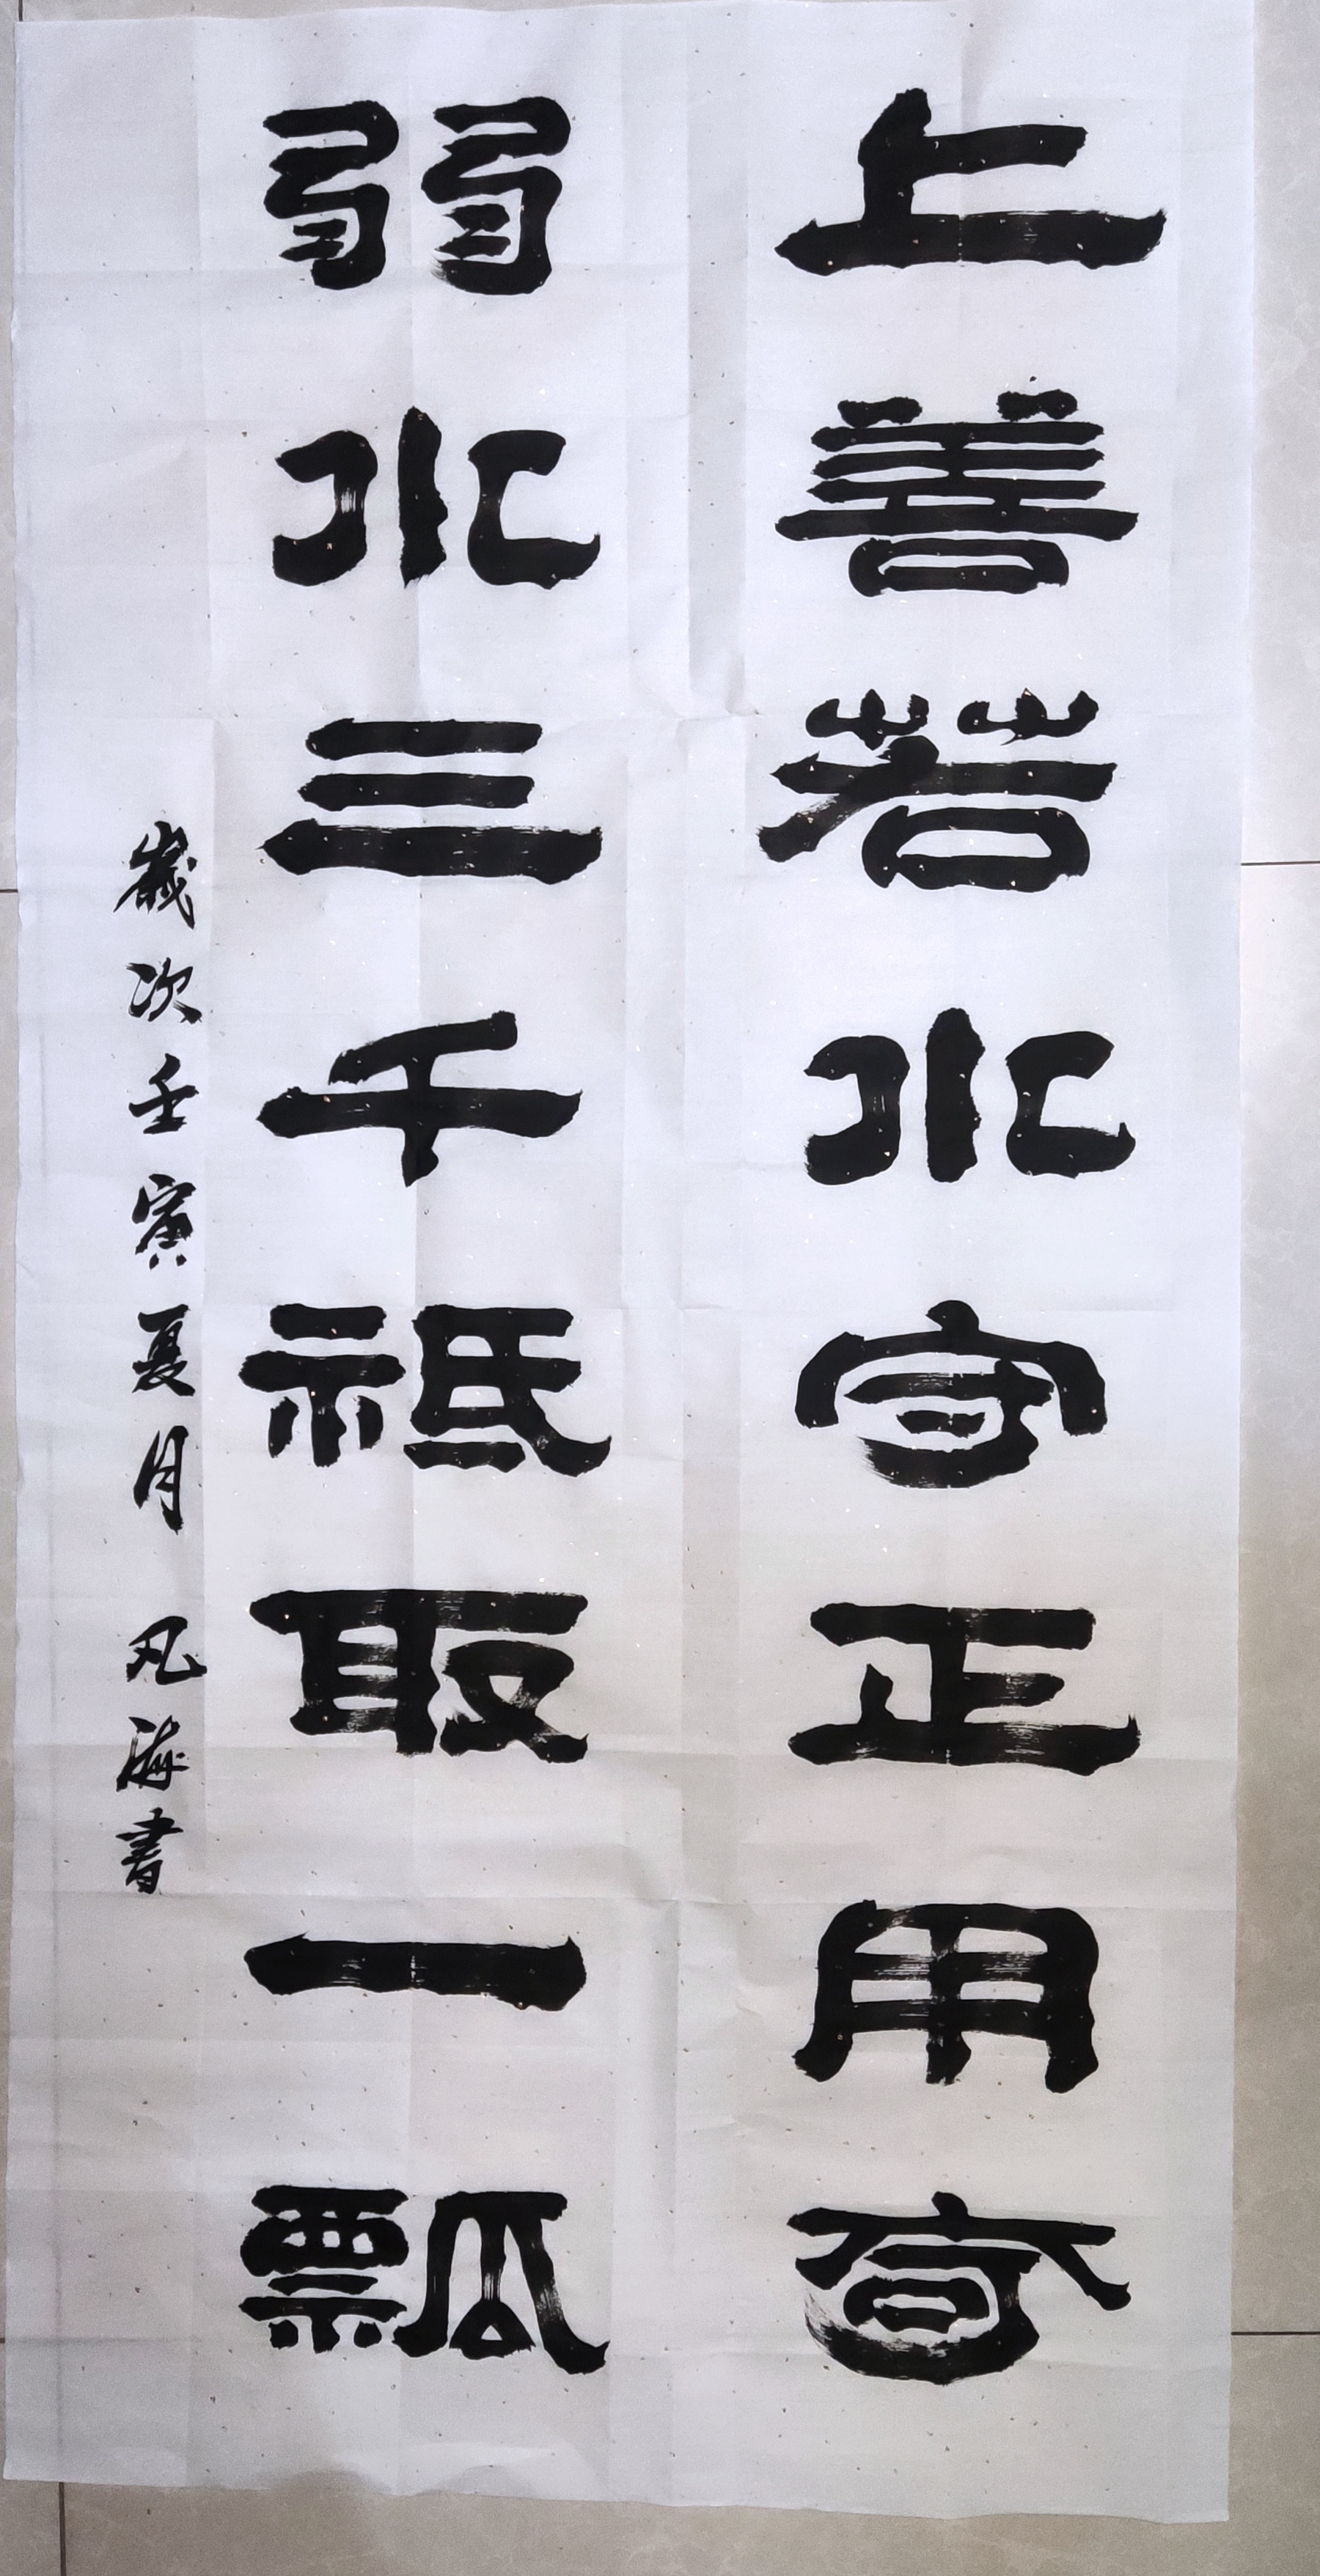 上善若水守正用奇
弱水三千祗取一瓢
歲次壬寅夏月 凡海書